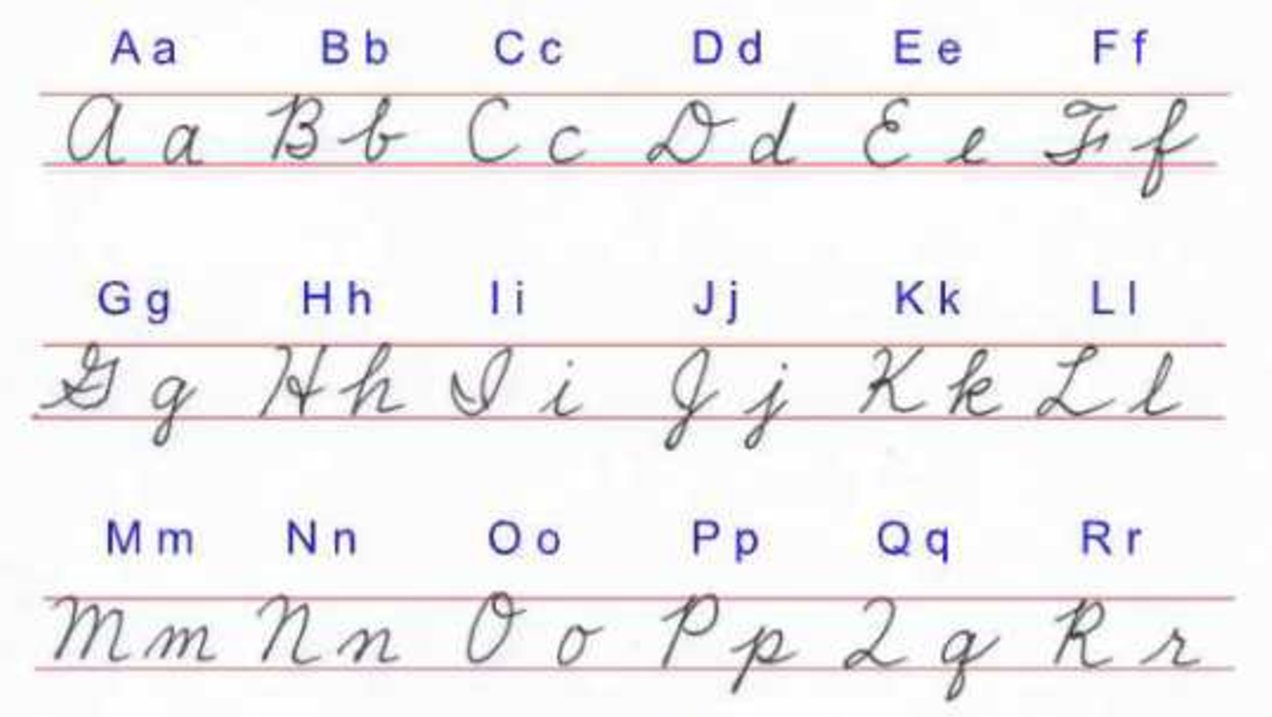 A a B b C c D d E e F f
A a B b C c D d E e F f
G g H h I i J j K k L l
G g H h I i J j K k L l
M m N n O o P p Q q R r
M m N n O o P p Q q R r